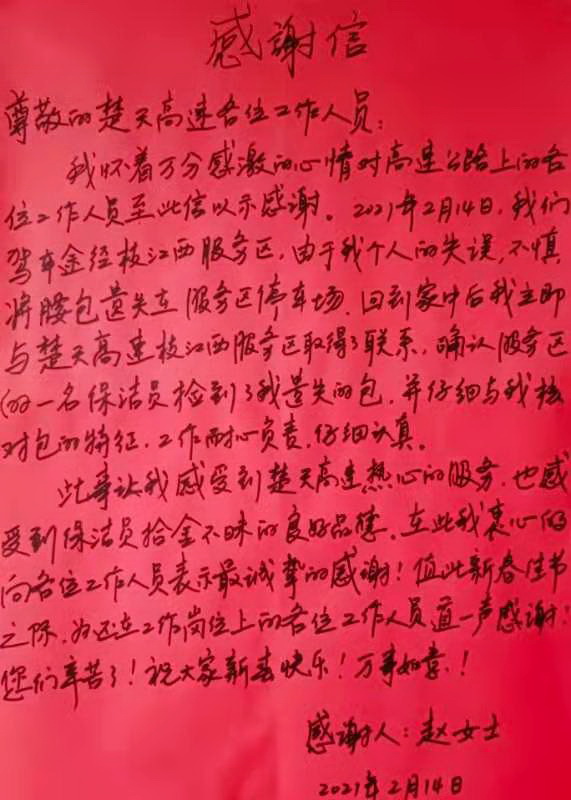 感谢信
尊敬的楚天高速各位工作人员:
我怀着万分感激的心情对高速公路上的各
位工作人员至此信以示感谢。2021年2月14日,我们
驾车途经枝江西服务区,由于我个人的失误,不慎
将腰包遗失在服务区停车场,回到家中后我立即
与楚天高速枝江西服务区取得了联系,确认服务区
的一名保洁员捡到了我遗失的包,并仔细与我核
对包的特征,工作耐心负责,仔细认真。
此事让我感受到楚天高速热心的服务,也感
受到保洁员拾金不昧的良好品德,在此我衷心的
向各位工作人员表示最诚挚的感谢!值此新春佳节
之际,为还在工作岗位上的各位工作人员道一声感谢!
您们辛苦了!祝大家新春快乐!万事如意!
感谢人:赵女士
2021年2月14日